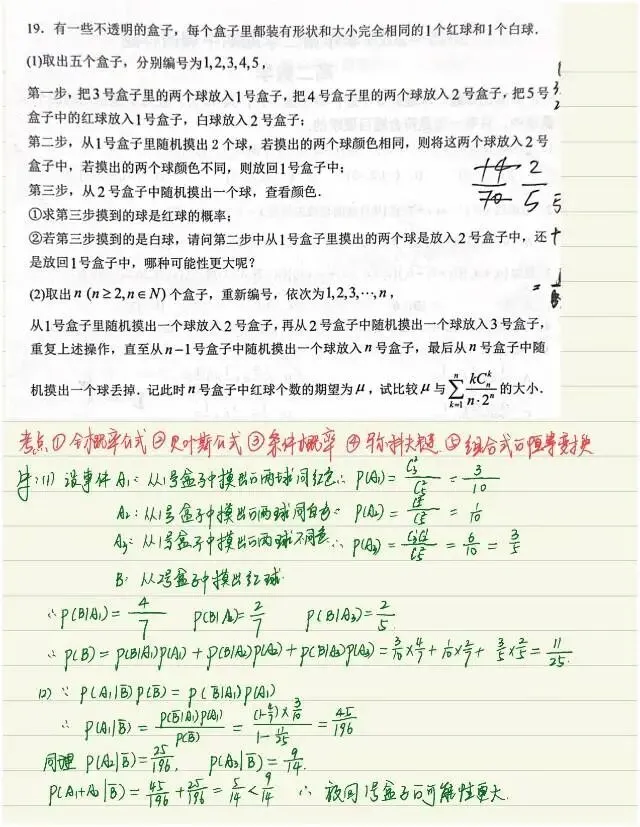 19. 有一些不透明的盒子，每个盒子里都装有形状和大小完全相同的1个红球和1个白球.
(1)取出五个盒子，分别编号为1,2,3,4,5，
第一步，把3号盒子里的两个球放入1号盒子，把4号盒子里的两个球放入2号盒子，把5号
盒子中的红球放入1号盒子，白球放入2号盒子；
第二步，从1号盒子里随机摸出2个球，若摸出的两个球颜色相同，则将这两个球放入2号
盒子中，若摸出的两个球颜色不同，则放回1号盒子中；
第三步，从2号盒子中随机摸出一个球，查看颜色.
①求第三步摸到的球是红球的概率；
②若第三步摸到的是白球，请问第二步中从1号盒子里摸出的两个球是放入2号盒子中，还
是放回1号盒子中，哪种可能性更大呢？
14/70 2/5
(2)取出n (n≥2,n∈N) 个盒子，重新编号，依次为1,2,3,⋯,n，
从1号盒子里随机摸出一个球放入2号盒子，再从2号盒子中随机摸出一个球放入3号盒子，
重复上述操作，直至从n−1号盒子中随机摸出一个球放入n号盒子，最后从n号盒子中随
机摸出一个球丢掉. 记此时n号盒子中红球个数的期望为μ，试比较μ与∑_{k=1}^{n} kC_n^k/(n·2^n) 的大小.
考点 ① 全概率公式 ② 贝叶斯公式 ③ 条件概率 ④ 弱料大题 ⑤ 组合式的恒等变换
(1) 设事件A₁: 从1号盒子中摸出的两球同红色 ∴ P(A₁) = C₃²/C₅² = 3/10
A₂: 从1号盒子中摸出的两球同白色 P(A₂) = C₂²/C₅² = 1/10
A₃: 从1号盒子中摸出的两球不同色 ∴ P(A₃) = C₃¹C₂¹/C₅² = 6/10 = 3/5
B: 从2号盒子中摸出红球.
∴ P(B|A₁) = 4/7 P(B|A₂) = 2/7 P(B|A₃) = 2/5
∴ P(B) = P(B|A₁)P(A₁) + P(B|A₂)P(A₂) + P(B|A₃)P(A₃) = 3/10×4/7 + 1/10×2/7 + 3/5×2/5 = 11/25.
(2) ∵ P(A₁|B̄)P(B̄) = P(B̄|A₁)P(A₁)
∴ P(A₁|B̄) = P(B̄|A₁)P(A₁)/P(B̄) = (1−4/7)×3/10/(1−11/25) = 45/196
同理 P(A₂|B̄) = 25/196, P(A₃|B̄) = 9/14.
P(A₁+A₂|B̄) = 45/196 + 25/196 = 5/14 < 9/14 ∴ 放回1号盒子的可能性更大.